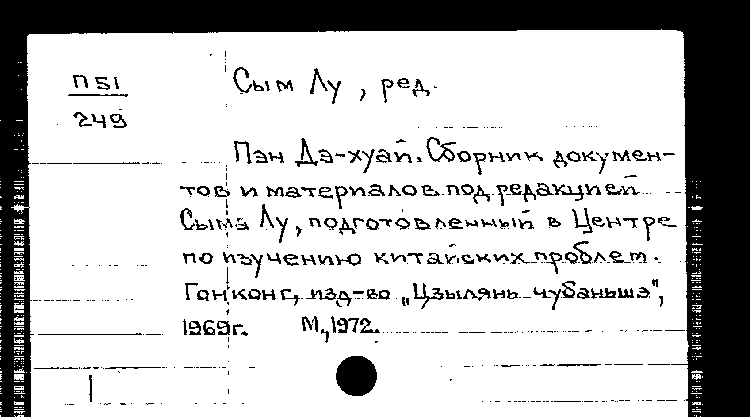 П51
249
Сым Лу, ред.
Пэн Дэ-хуай. Сборник докумен-
тов и материалов под редакцией
Сыма Лу, подготовленный в Центре
по изучению китайских проблем.
Гонконг, изд-во „Цзылянь чубаньшэ",
1969г. М., 1972.